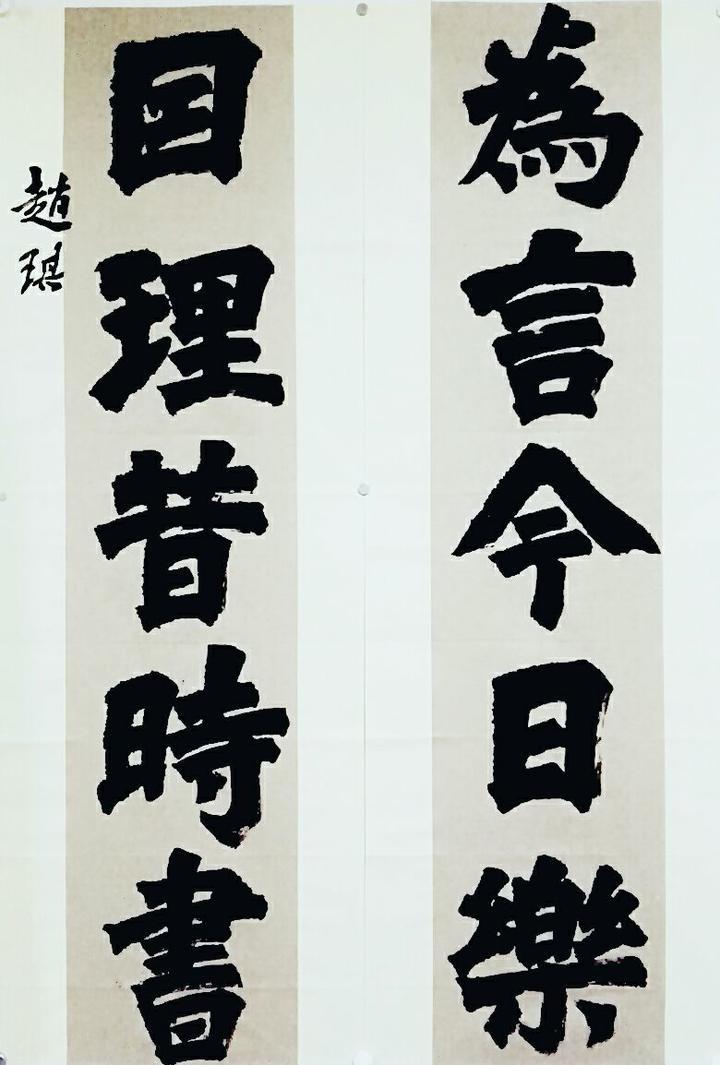 為言今日樂
囙理昔時書
趙琪